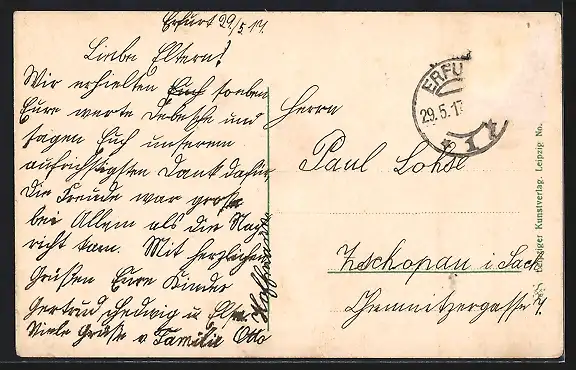 Erfurt 29/5 17.
Liebe Eltern!
Wir erhielten Euch soeben
Eure werte Debesche und
sagen Euch unseren
aufrichtigsten Dank dafür
die Freude war gross
bei Allem als die Nach
richt kam. Mit herzlichen
Grüßen Eure Kinder
Gertrud Hedwig u Else
Viele Grüße v Familie Otto
Herrn
Paul Lohse
Zschopau i. Sach
Chemnitzergasse 4.
ERFU
29.5.17
* 1 *
Leipziger Kunstverlag. Leipzig No.